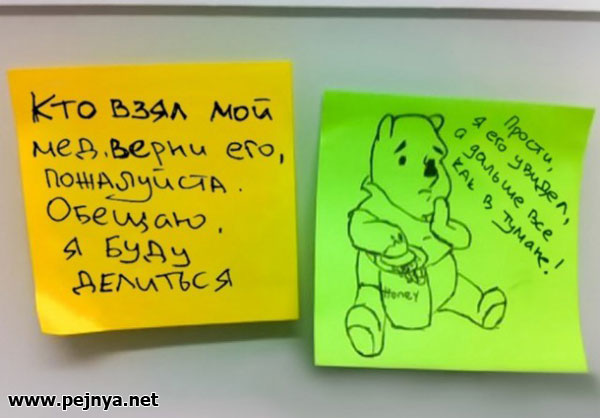 Кто взял мой
мед.верни его,
пожалуйста.
Обещаю,
я буду
делиться
Прости,
я его увидел,
а дальше все
как в тумане!
Honey
www.pejnya.net